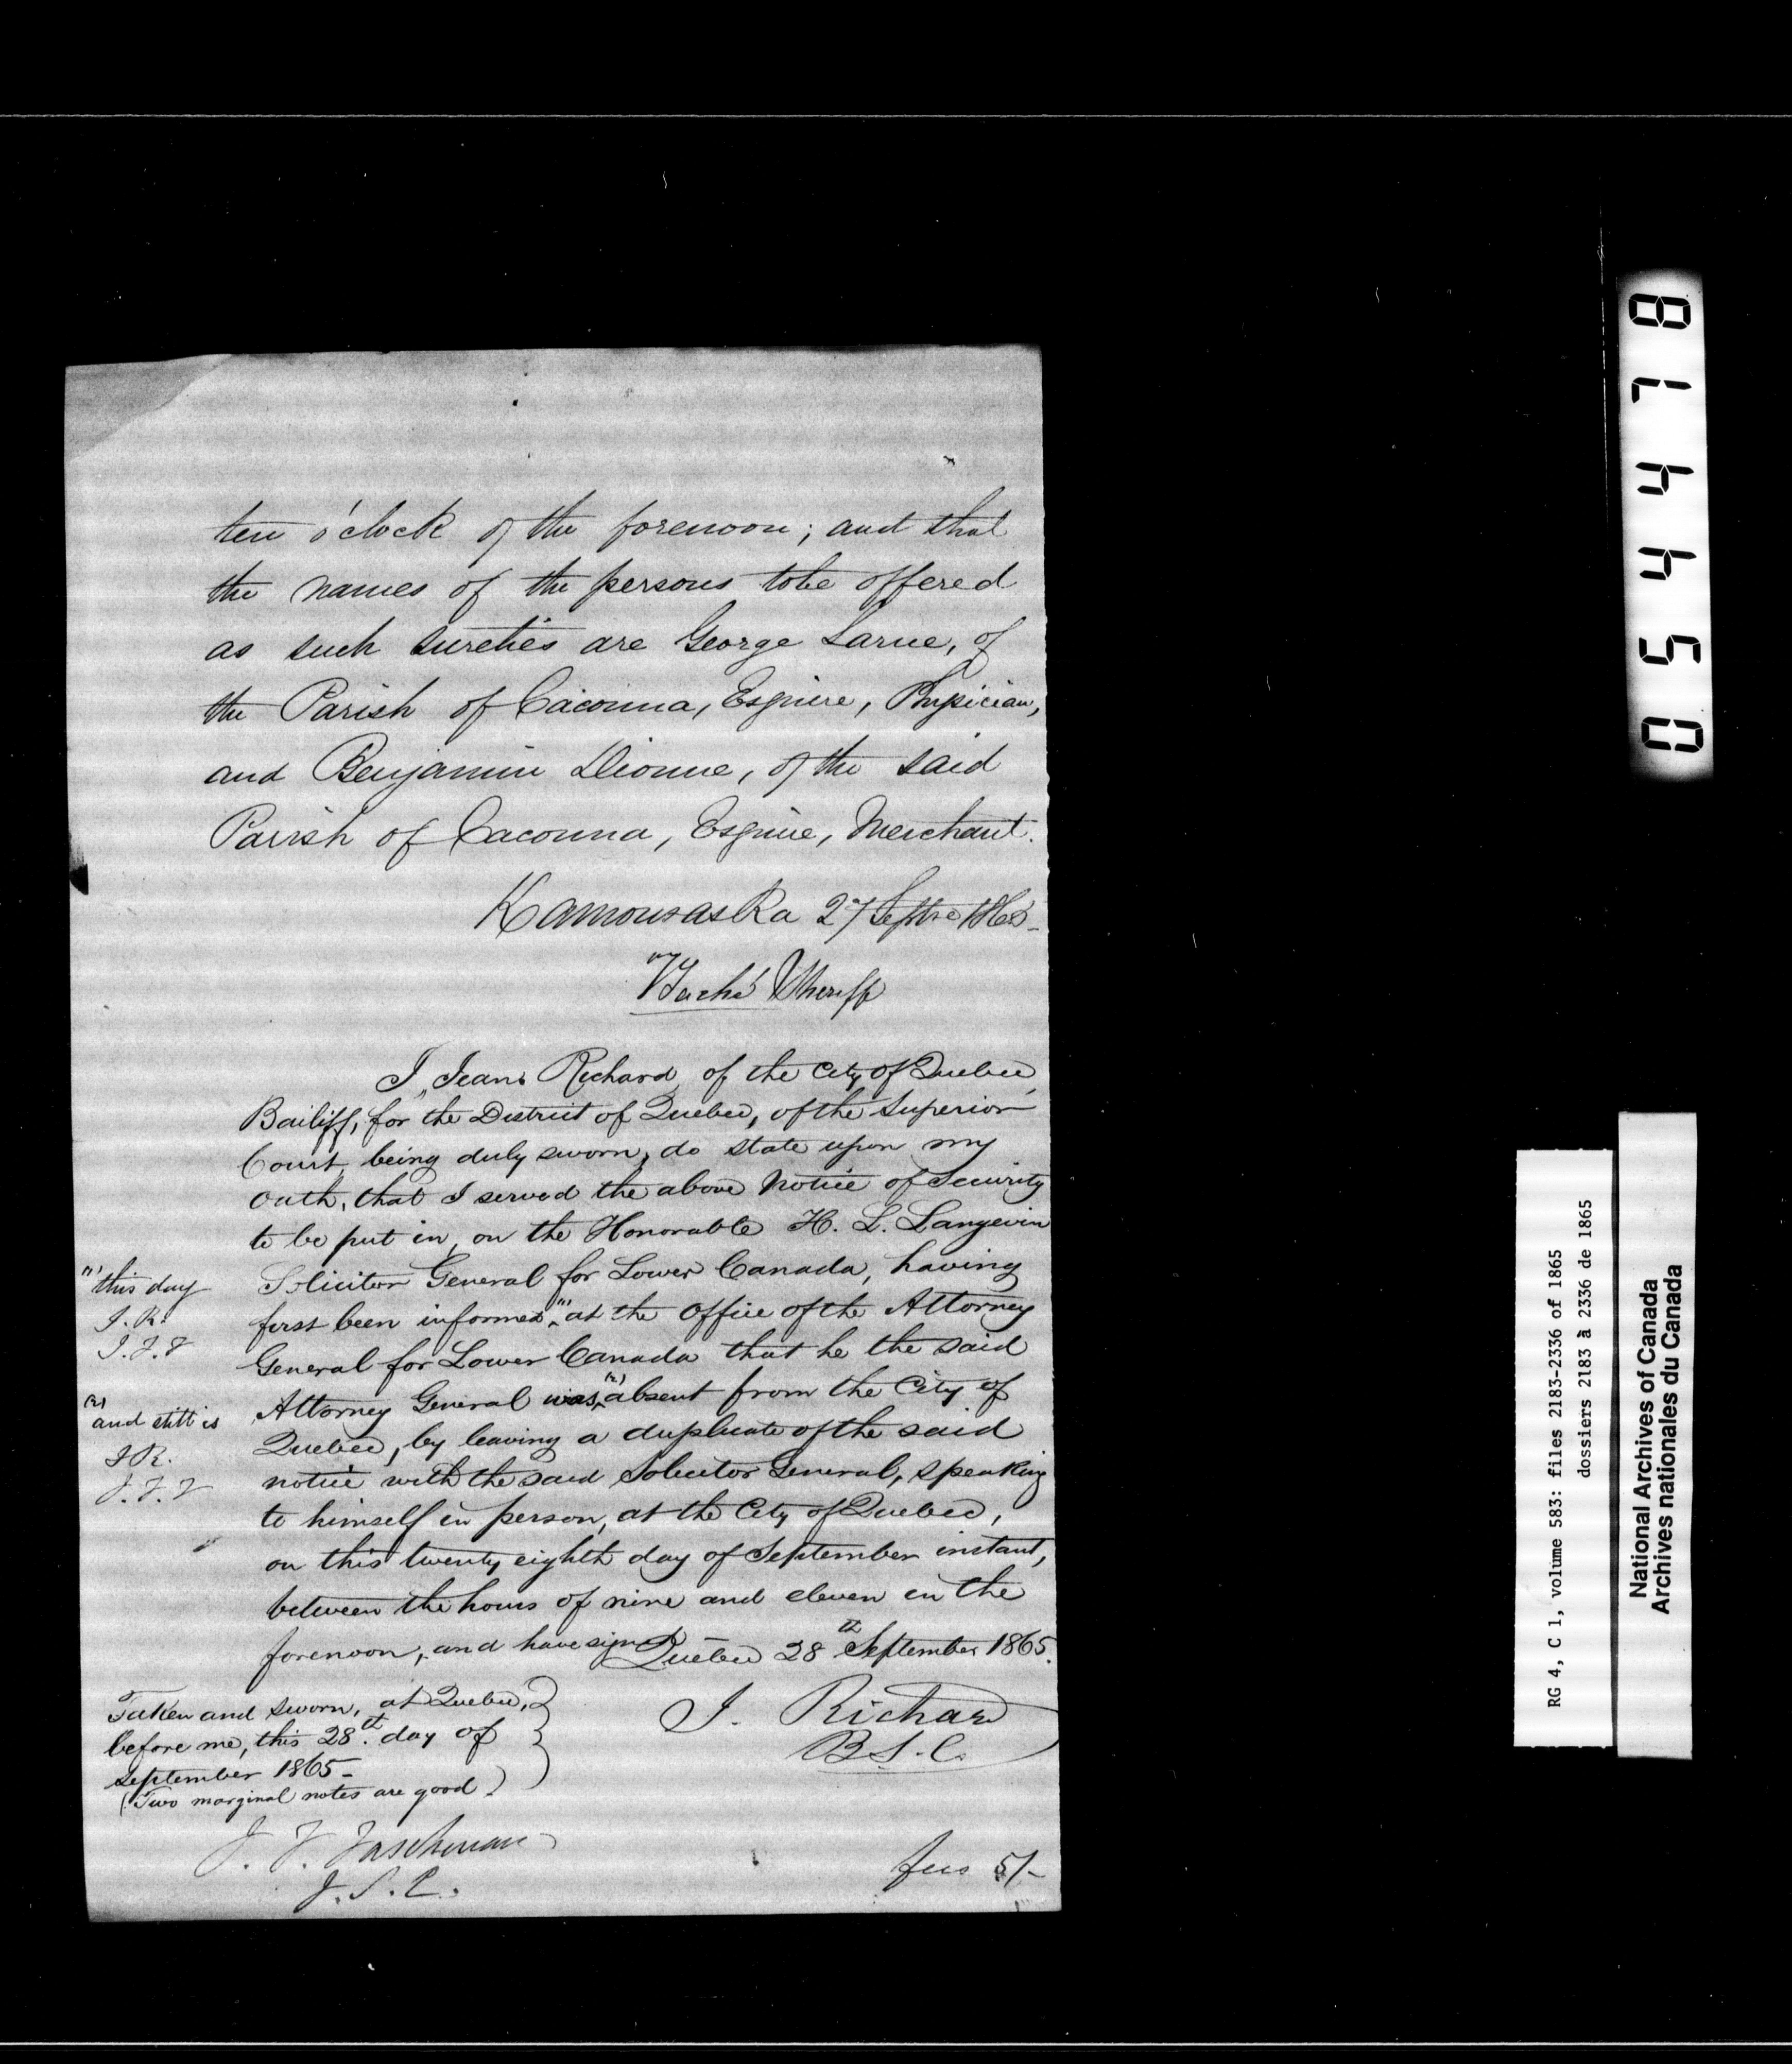 ten o'clock of the forenoon; and that
the names of the persons to be offered
as such sureties are George Larue, of
the Parish of Cacouna, Esquire, Physician,
and Benjamin Dionne, of the said
Parish of Cacouna, Esquire, Merchant.
Kamouraska 27 Septre 1865
Taché Sheriff
I, Jean Richard, of the City of Quebec,
Bailiff, for the District of Quebec, of the Superior
Court, being duly sworn, do state upon my
Oath, that I served the above Notice of Security
to be put in, on the Honorable H. L. Langevin
Solicitor General for Lower Canada, having
first been informed (1) at the Office of the Attorney
General for Lower Canada that he the said
Attorney General was (2) absent from the City of
Quebec, by leaving a duplicate of the said
notice with the said Solicitor General, speaking
to himself in person, at the City of Quebec,
on this twenty eighth day of September instant,
between the hours of nine and eleven in the
forenoon, and have signed
Quebec 28th September 1865.
(1) this day
J. R.
J. T. T
(2) and still is
J R.
J. T. T
Taken and sworn, at Quebec,
before me, this 28th day of
September 1865 -
(Two marginal notes are good)
J. T. Taschereau
J. S. C.
J. Richard
B. S. C.
fees 5/-
0 5 4 4 7 8
RG 4, C 1, volume 583: files 2183-2336 of 1865
dossiers 2183 à 2336 de 1865
National Archives of Canada
Archives nationales du Canada